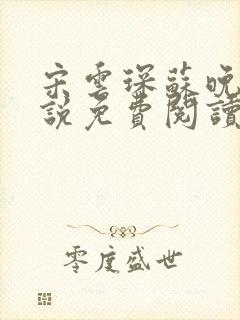 宋雲琛蘇晚
說免費閱讀
零度盛世